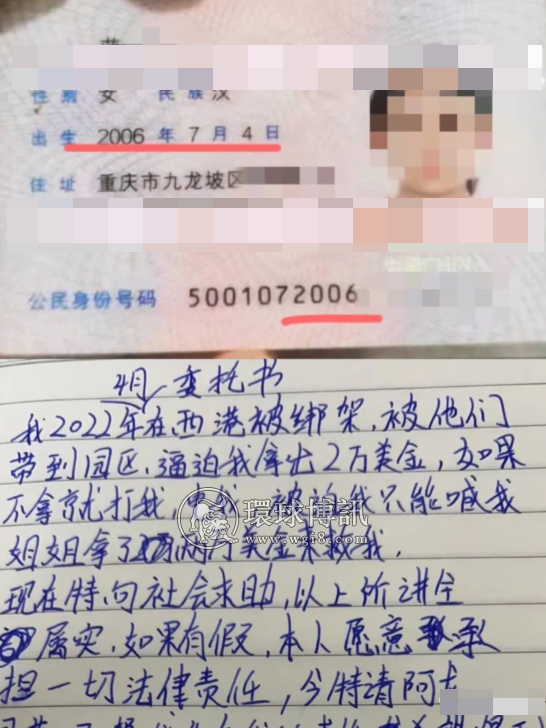 性别 女 民族 汉
出生 2006 年 7 月 4 日
住址 重庆市九龙坡区
公民身份号码 5001072006
委托书
4月
我2022年在西港被绑架,被他们
带到园区,逼迫我拿出2万美金,如果
不拿就打我,我只能喊我
姐姐拿了两万美金来救我.
现在特向社会求助,以上所讲全
属实,如果有假,本人愿意承
担一切法律责任,今特请阿
環球博訊
www.wgi8.com